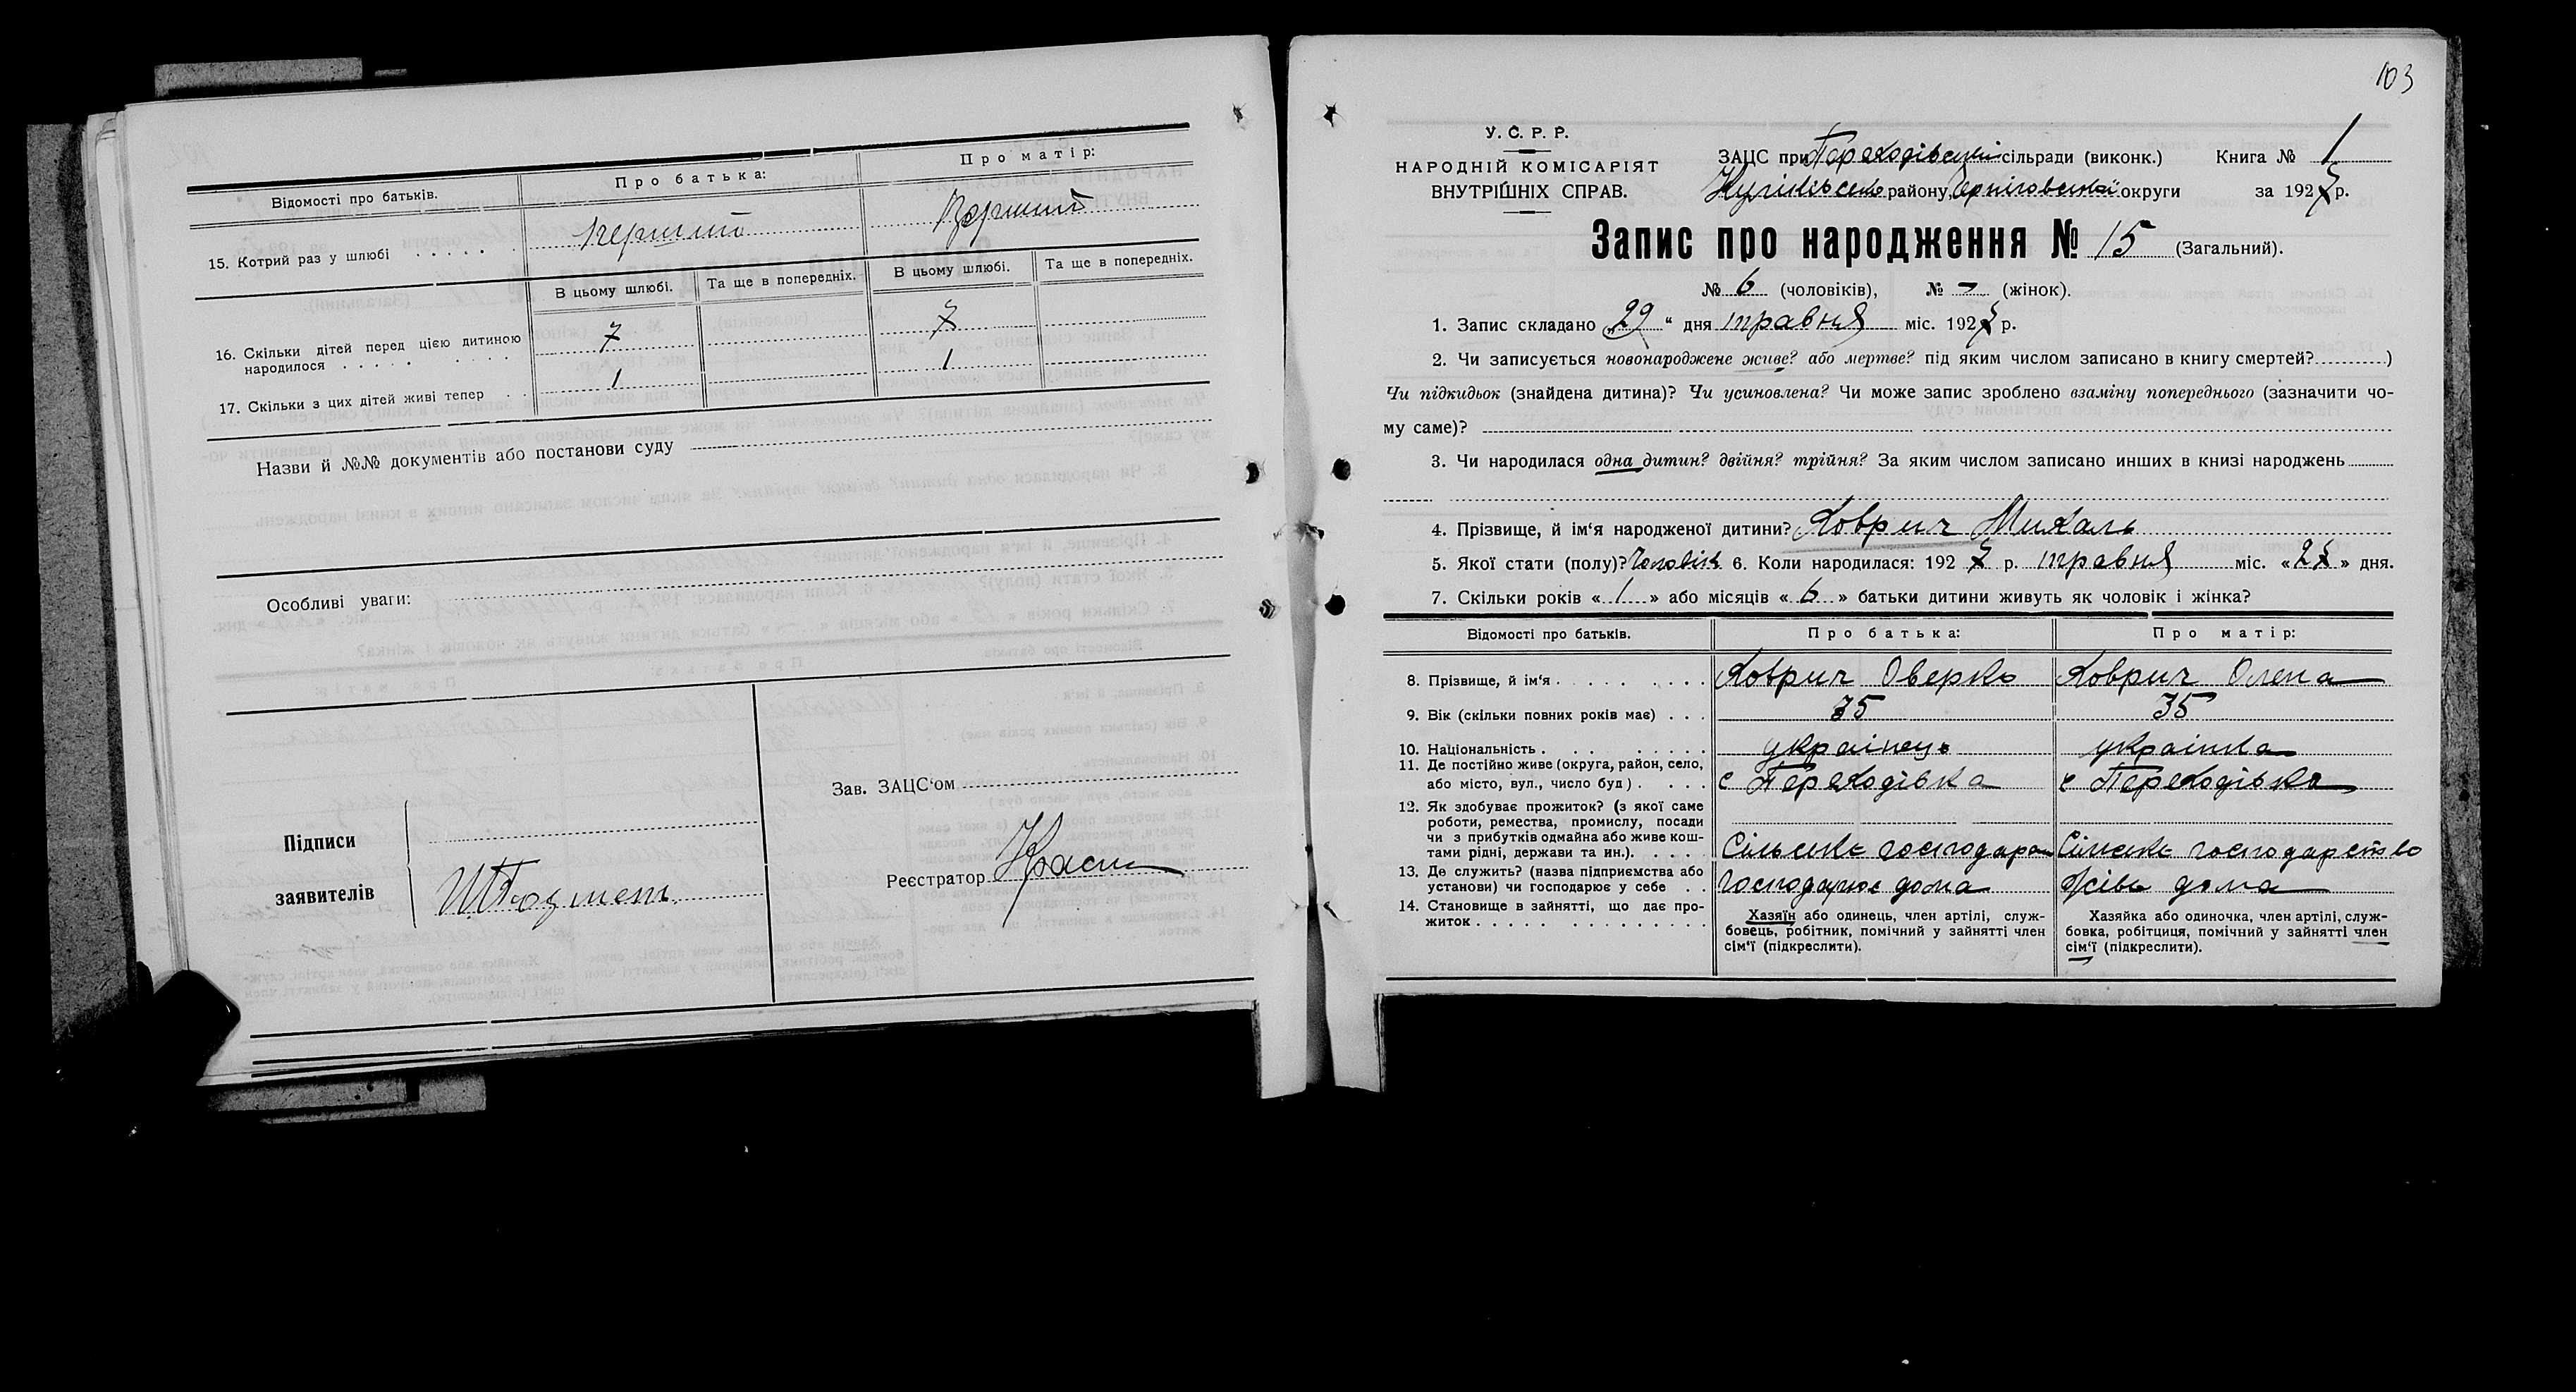 Відомості про батьків.
Про батька:
Про матір:
15. Котрий раз у шлюбі . . . . .
перший
Перший
В цьому шлюбі.
Та ще в попередніх.
В цьому шлюбі.
Та ще в попередніх.
16. Скільки дітей перед цією дитиною
народилося . . . . . . . . .
7
7
17. Скільки з цих дітей живі тепер . .
1
1
Назви й №№ документів або постанови суду
Особливі уваги:
Підписи
заявителів
Зав. ЗАЦС‘ом
Реєстратор
103
У. С. Р. Р.
НАРОДНІЙ КОМІСАРІЯТ
ВНУТРІШНІХ СПРАВ.
ЗАЦС при Переходівській сільради (виконк.) Книга № 1
району, Чернігівської округи за 1927 р.
Запис про народження № 15 (Загальний).
№ 6 (чоловіків), № – (жінок).
1. Запис складано „29“ дня травня міс. 1927 р.
2. Чи записується новонароджене живе? або мертве? під яким числом записано в книгу смертей? )
Чи підкидьок (знайдена дитина)? Чи усиновлена? Чи може запис зроблено взаміну попереднього (зазначити чо-
му саме)?
3. Чи народилася одна дитин? двійня? трійня? За яким числом записано инших в книзі народжень
4. Прізвище, й ім‘я народженої дитини? Ховрич Михаль
5. Якої стати (полу)? Чоловік 6. Коли народилася: 1927 р. травня міс. «27» дня.
7. Скільки років «1» або місяців «6» батьки дитини живуть як чоловік і жінка?
Відомості про батьків.
Про батька:
Про матір:
8. Прізвище, й ім‘я . . . . . . . .
Ховрич Оверко
Ховрич Олена
9. Вік (скільки повних років має) . . .
35
35
10. Національність . . . . . . . .
українець
українка
11. Де постійно живе (округа, район, село,
або місто, вул., число буд) . . . .
с Переходівка
с Переходівка
12. Як здобуває прожиток? (з якої саме
роботи, ремества, промислу, посади
чи з прибутків одмайна або живе кош-
тами рідні, держави та ин.). . . . .
Сільське господарст
Сільське господарство
13. Де служить? (назва підприємства або
установи) чи господарює у себе . .
Господарює дома
Живе дома
14. Становище в зайнятті, що дає про-
житок . . . . . . . . . . . . . .
Хазяїн або одинець, член артілі, служ-
бовець, робітник, помічний у зайнятті член
сім‘ї (підкреслити).
Хазяйка або одиночка, член артілі, служ-
бовка, робітциця, помічний у зайнятті член
сім‘ї (підкреслити).